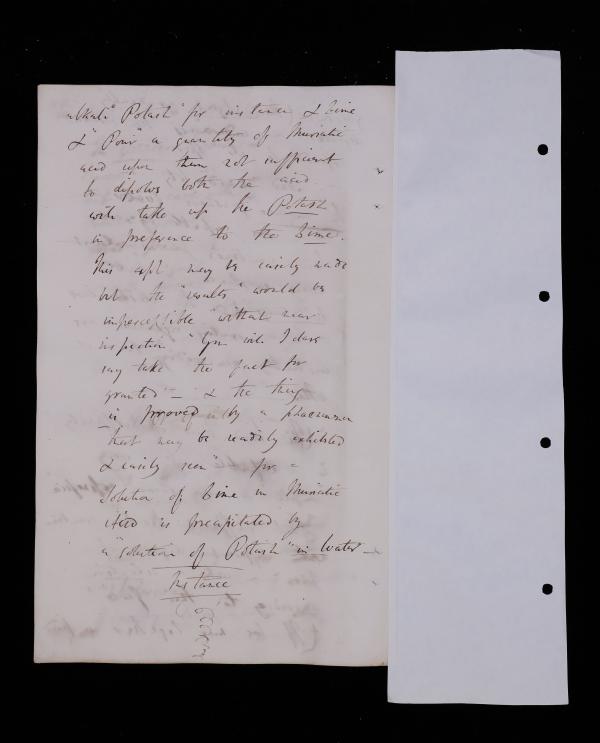 alkali "Potash" for instance & Lime
& "Pour" a quantity of Muriatic
acid upon them not sufficient
to dissolve both the acid
will take up the Potash
in preference to the Lime.
This expt may be easily made
but the "results" would be
imperceptible "without near
inspection" You will I dare
say take the fact for
granted — & the thing
is proved by a phaenomenon
that may be readily exhibited
& easily seen" for a
Solution of Lime in Muriatic
Acid is precipitated by
a "solution of Potash" in Water —
Instance